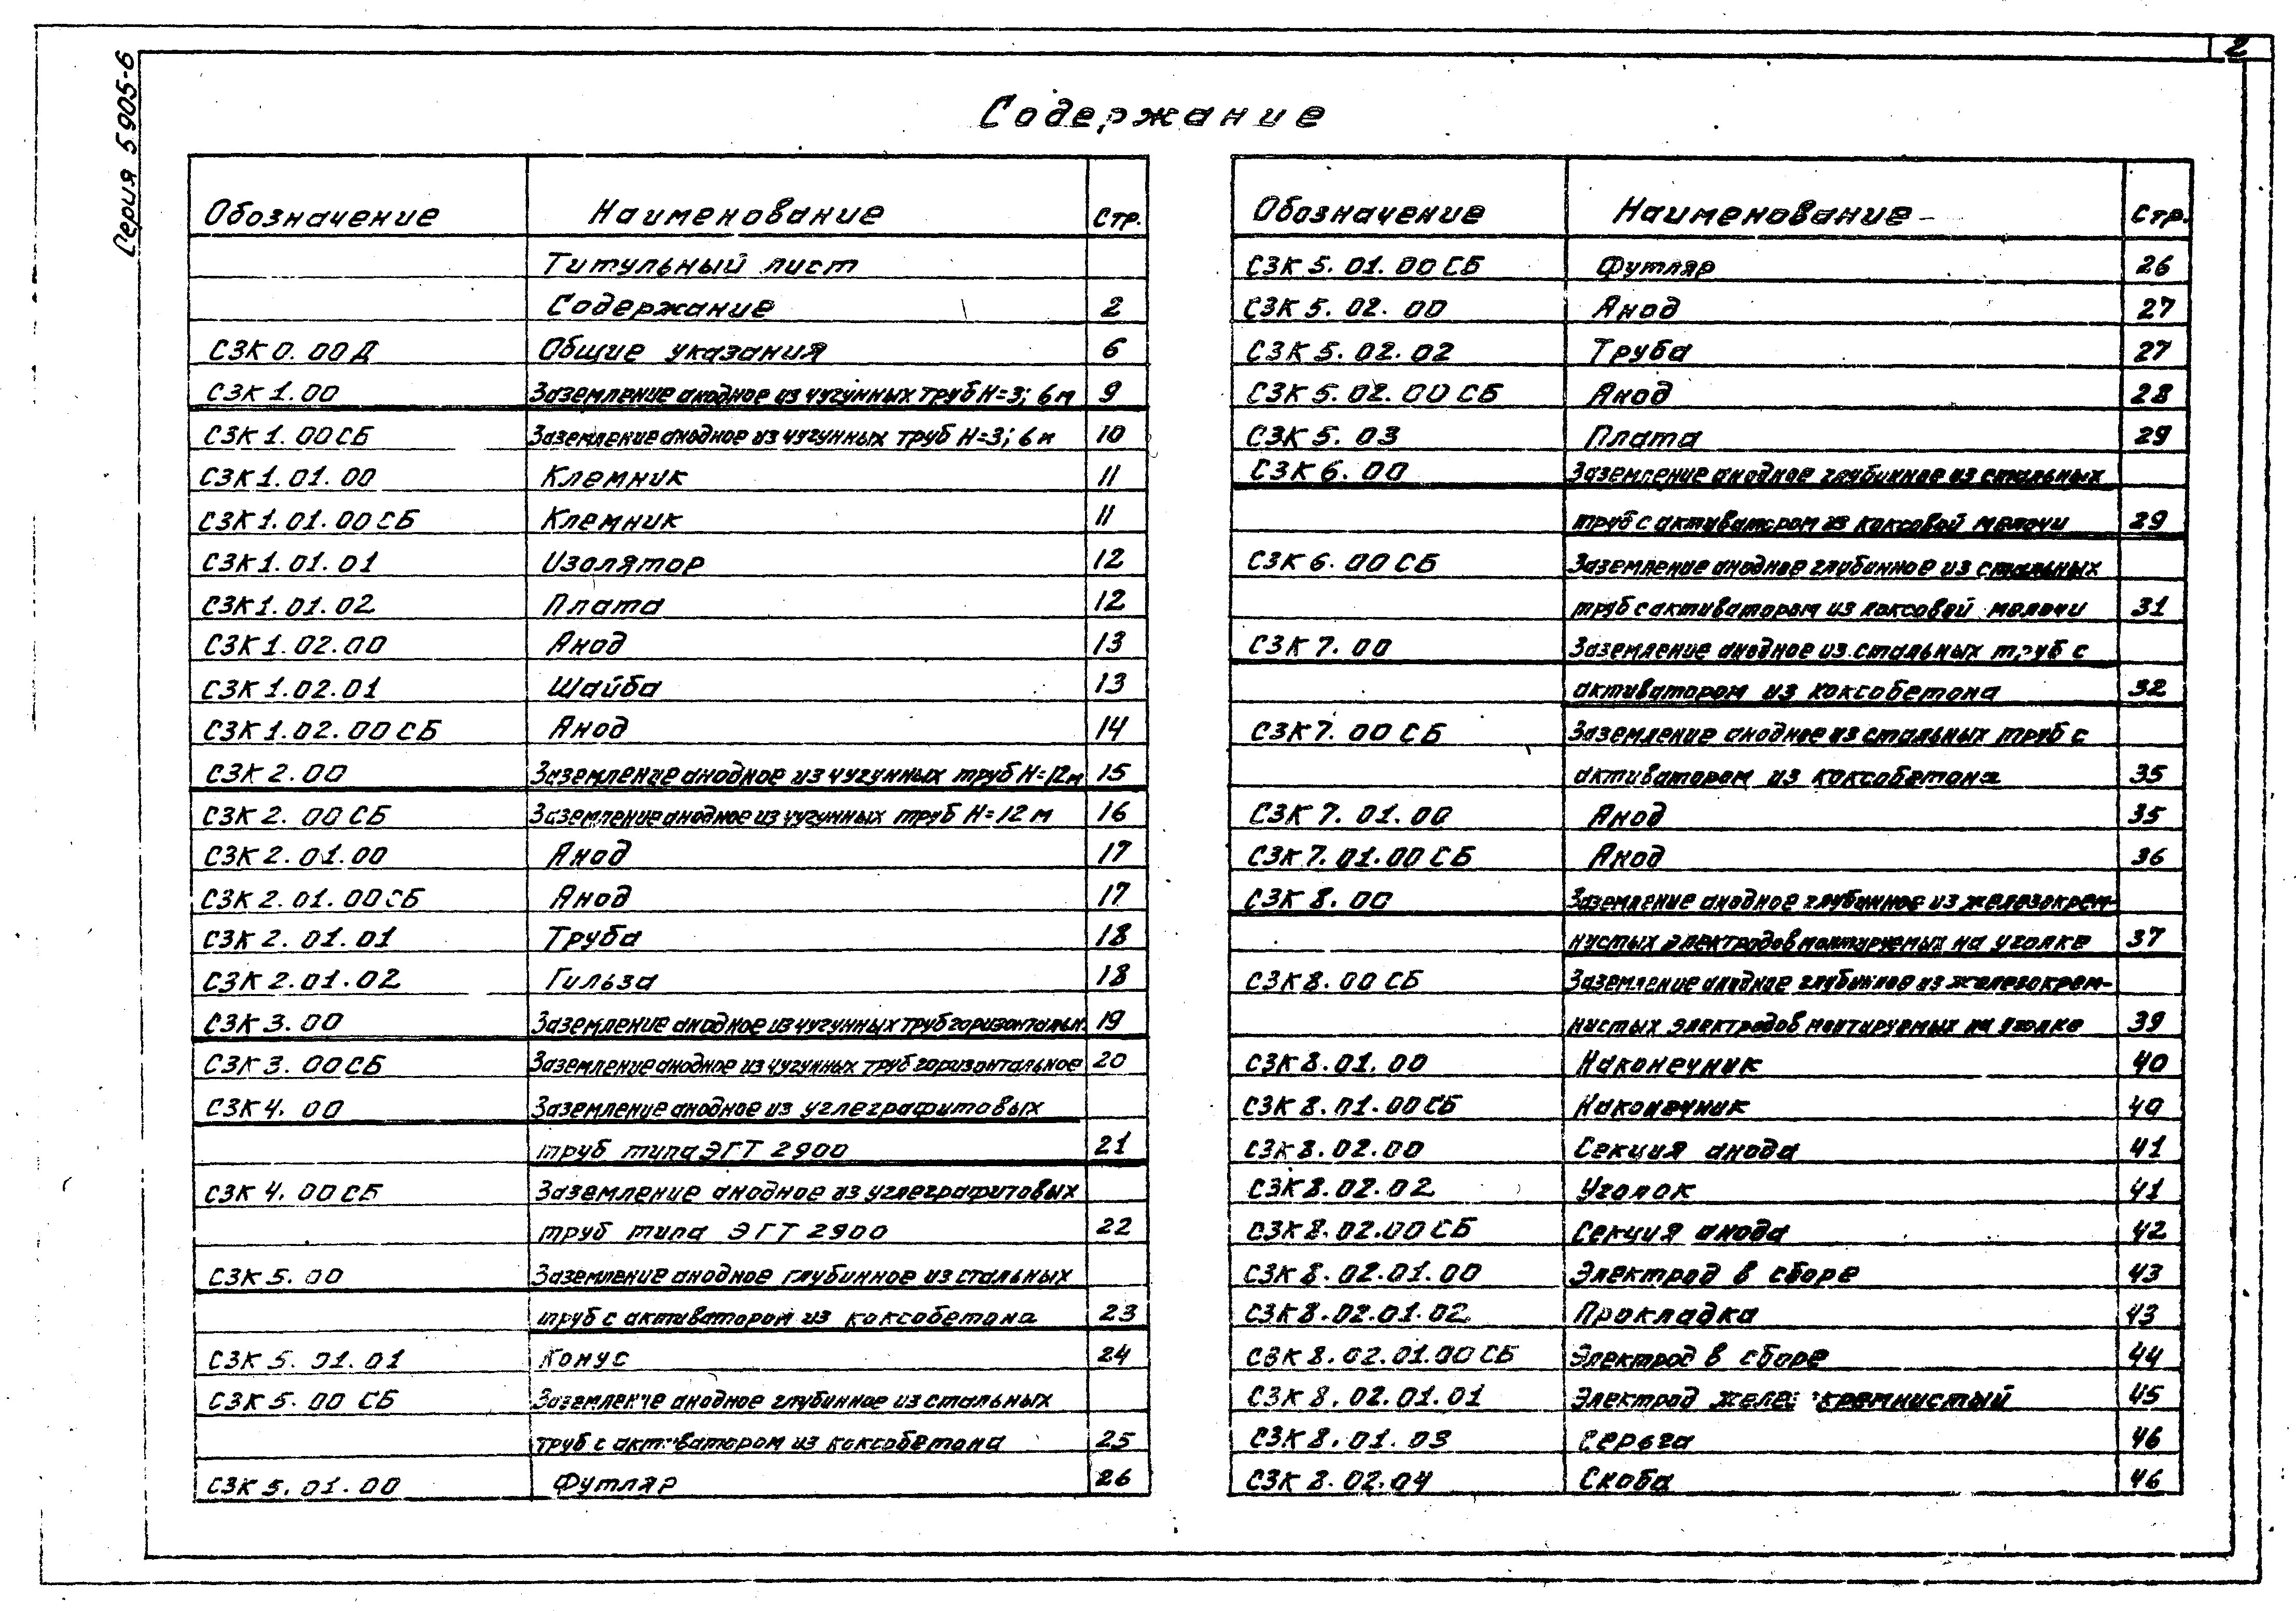 2
Серия 5 905-6
Содержание
Обозначение Наименование Стр.
Титульный лист
Содержание 2
СЗК 0. 00 Д Общие указания 6
СЗК 1. 00 Заземление анодное из чугунных труб Н=3; 6м 9
СЗК 1. 00 СБ Заземление анодное из чугунных труб Н=3; 6м 10
СЗК 1. 01. 00 Клемник 11
СЗК 1. 01. 00 СБ Клемник 11
СЗК 1. 01. 01 Изолятор 12
СЗК 1. 01. 02 Плата 12
СЗК 1. 02. 00 Анод 13
СЗК 1. 02. 01 Шайба 13
СЗК 1. 02. 00 СБ Анод 14
СЗК 2. 00 Заземление анодное из чугунных труб Н=12м 15
СЗК 2. 00 СБ Заземление анодное из чугунных труб Н=12 м 16
СЗК 2. 01. 00 Анод 17
СЗК 2. 01. 00 СБ Анод 17
СЗК 2. 01. 01 Труба 18
СЗК 2. 01. 02 Гильза 18
СЗК 3. 00 Заземление анодное из чугунных труб горизонтальн. 19
СЗК 3. 00 СБ Заземление анодное из чугунных труб горизонтальное 20
СЗК 4. 00 Заземление анодное из углеграфитовых
труб типа ЭГТ 2900 21
СЗК 4. 00 СБ Заземление анодное из углеграфитовых
труб типа ЭГТ 2900 22
СЗК 5. 00 Заземление анодное глубинное из стальных
труб с активатором из коксобетона 23
СЗК 5. 01. 01 Конус 24
СЗК 5. 00 СБ Заземление анодное глубинное из стальных
труб с активатором из коксобетона 25
СЗК 5. 01. 00 Футляр 26
Обозначение Наименование Стр.
СЗК 5. 01. 00 СБ Футляр 26
СЗК 5. 02. 00 Анод 27
СЗК 5. 02. 02 Труба 27
СЗК 5. 02. 00 СБ Анод 28
СЗК 5. 03 Плата 29
СЗК 6. 00 Заземление анодное глубинное из стальных
труб с активатором из коксовой мелочи 29
СЗК 6. 00 СБ Заземление анодное глубинное из стальных
труб с активатором из коксовой мелочи 31
СЗК 7. 00 Заземление анодное из стальных труб с
активатором из коксобетона 32
СЗК 7. 00 СБ Заземление анодное из стальных труб с
активатором из коксобетона 35
СЗК 7. 01. 00 Анод 35
СЗК 7. 01. 00 СБ Анод 36
СЗК 8. 00 Заземление анодное глубинное из железокрем-
нистых электродов монтируемых на уголке 37
СЗК 8. 00 СБ Заземление анодное глубинное из железокрем-
нистых электродов монтируемых на уголке 39
СЗК 8. 01. 00 Наконечник 40
СЗК 8. 01. 00 СБ Наконечник 40
СЗК 8. 02. 00 Секция анода 41
СЗК 8. 02. 02 Уголок 41
СЗК 8. 02. 00 СБ Секция анода 42
СЗК 8. 02. 01. 00 Электрод в сборе 43
СЗК 8. 02. 01. 02 Прокладка 43
СЗК 8. 02. 01. 00 СБ Электрод в сборе 44
СЗК 8. 02. 01. 01 Электрод железокремнистый 45
СЗК 8. 01. 03 Серьга 46
СЗК 8. 02. 04 Скоба 46